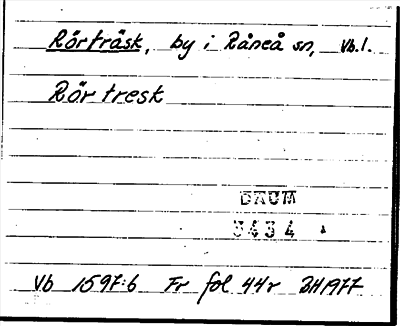 Rörträsk, by i Råneå sn, Vb.l.
Rör tresk
DAUM
3434
Vb 1597:6 Fr fol 44r BH1977